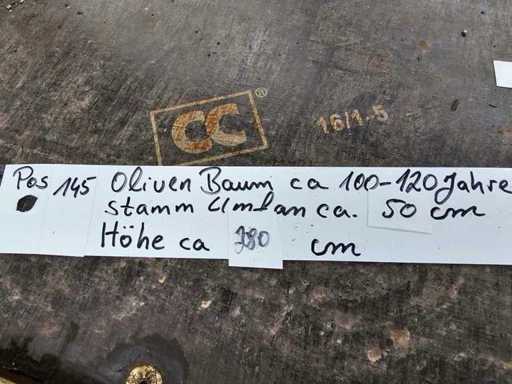 CC®
16/1-5
Pos 145 Oliven Baum ca 100-120 Jahre
stamm Umfan ca. 50 cm
Höhe ca 380 cm